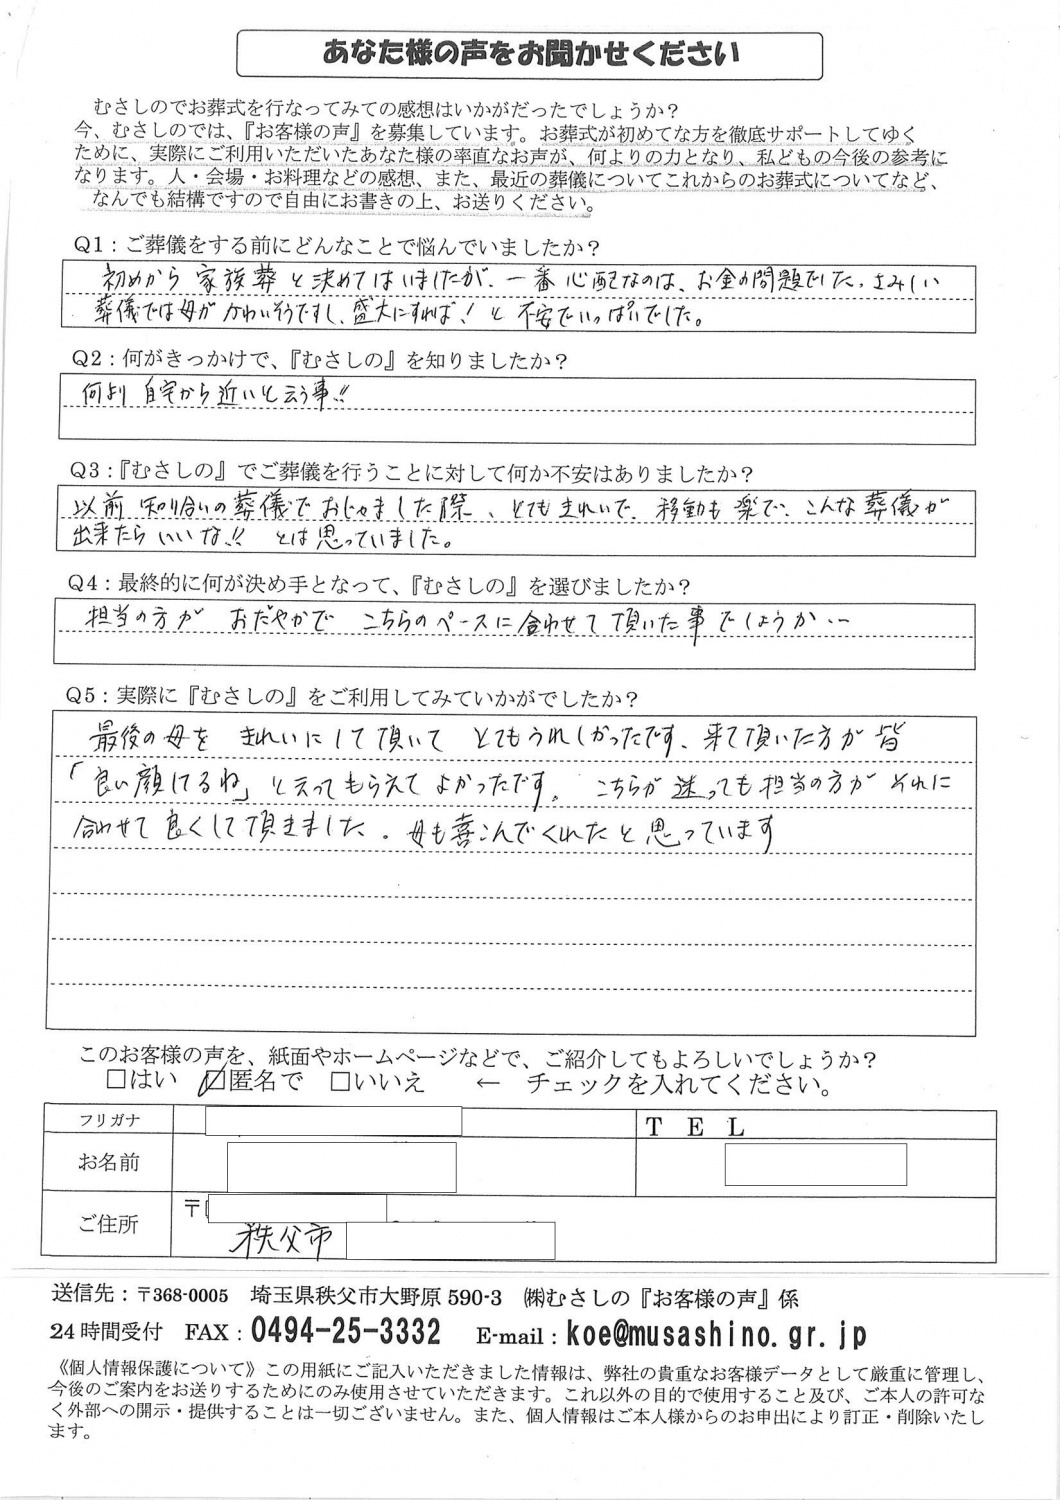 あなた様の声をお聞かせください
むさしのでお葬式を行なってみての感想はいかがだったでしょうか？
今、むさしのでは、『お客様の声』を募集しています。お葬式が初めてな方を徹底サポートしてゆく
ために、実際にご利用いただいたあなた様の率直なお声が、何よりの力となり、私どもの今後の参考に
なります。人・会場・お料理などの感想、また、最近の葬儀についてこれからのお葬式についてなど、
なんでも結構ですので自由にお書きの上、お送りください。
Q1：ご葬儀をする前にどんなことで悩んでいましたか？
初めから家族葬と決めてはいましたが、一番心配なのは、お金の問題でした。さみしい
葬儀では母がかわいそうですし、盛大にすれば！と不安でいっぱいでした。
Q2：何がきっかけで、『むさしの』を知りましたか？
何より自宅から近いと云う事!!
Q3：『むさしの』でご葬儀を行うことに対して何か不安はありましたか？
以前知り合いの葬儀でおじゃました際、とてもきれいで、移動も楽で、こんな葬儀が
出来たらいいな!! とは思っていました。
Q4：最終的に何が決め手となって、『むさしの』を選びましたか？
担当の方がおだやかでこちらのペースに合わせて頂いた事でしょうか…
Q5：実際に『むさしの』をご利用してみていかがでしたか？
最後の母をきれいにして頂いてとてもうれしかったです、来て頂いた方が皆
「良い顔してるね」と云ってもらえてよかったです。こちらが迷っても担当の方がそれに
合わせて良くして頂きました。母も喜こんでくれたと思っています
このお客様の声を、紙面やホームページなどで、ご紹介してもよろしいでしょうか？
□はい ☑匿名で □いいえ ← チェックを入れてください。
フリガナ
TEL
お名前
ご住所
〒
秩父市
送信先：〒368-0005 埼玉県秩父市大野原590-3 ㈱むさしの『お客様の声』係
24時間受付 FAX：0494-25-3332 E-mail：koe@musashino.gr.jp
《個人情報保護について》この用紙にご記入いただきました情報は、弊社の貴重なお客様データとして厳重に管理し、
今後のご案内をお送りするためにのみ使用させていただきます。これ以外の目的で使用すること及び、ご本人の許可な
く外部への開示・提供することは一切ございません。また、個人情報はご本人様からのお申出により訂正・削除いたし
ます。